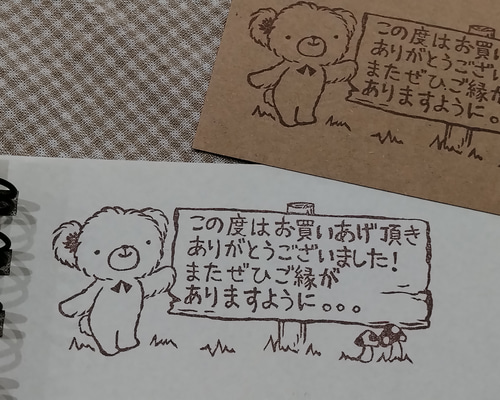 この度はお買い
ありがとうござい
またぜひご縁が
ありますように。
この度はお買いあげ頂き
ありがとうございました!
またぜひご縁が
ありますように。。。